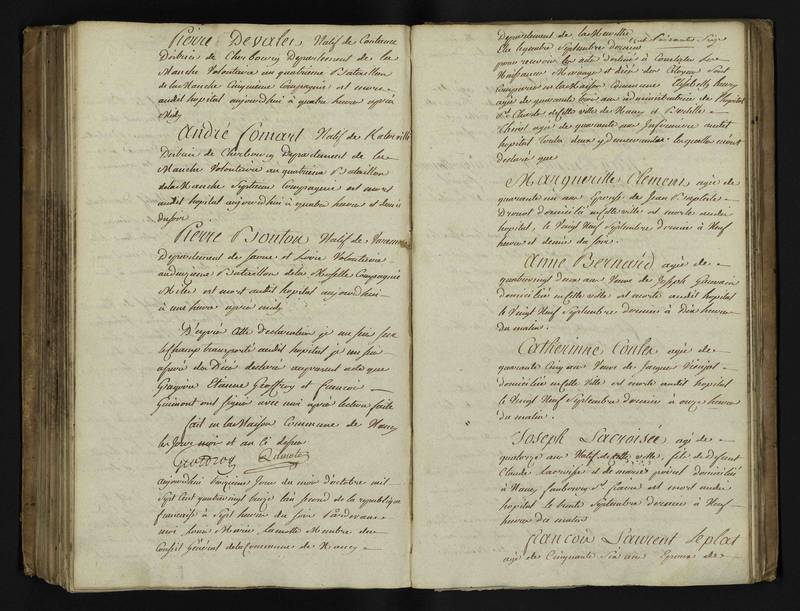 Pierre Devales Natif de Contence
District de Cherbourg Departement de la
Manche Volontaire au quatrieme Bataillon
de la Manche Cinquieme Compagnie est mort
audit hopital aujourd'hui à quatre heures après
midy
André Comart Natif de
District de Cherbourg Departement de la
Manche Volontaire au quatrieme Bataillon
de la Manche Septieme Compagnie est mort
audit hopital aujourd'hui à quatre heures et demie
du soir
Pierre Bonton Natif de
Departement de Saone et Loire Volontaire
Bataillon de la Moselle Compagnie
est mort audit hopital aujourd'hui
à une heure après midy
D'après cette Declaration je me suis sur
le champ transporté audit hopital je me suis
assuré du Décé declaré au present acte que
Etienne Geoffroy et francois
Guimont ont signé avec moi après lecture faite
fait en la Maison Commune de Nancy
les Jour mois et an Ci dessus
aujourd'hui Jour du mois d'octobre mil
Sept Cent quatrevingt treize l'an second de la republique
francaise à Sept heures du soir Pardevant
moi Louis Marie Lamotte Membre du
Conseil Général de la Commune de Nancy
Departement de la Meurthe
Elu Septembre dernier
pour recevoir les actes destinés à Constater les
Naissances Mariages et décès des Citoyens Sont
Comparues en la Maison Commune Elisabeth henry
agée de quarante trois ans administratrice de l'hopital
St Charles de cette ville de Nancy et
agée de quarante ans Infirmiere audit
hopital toutes deux y demeurantes lesquelles m'ont
declaré que
Margueritte Clement agée de
quarante un ans Epouse de Jean Baptiste
Drouot domicilié en cette ville est morte audit
hopital, le Vingt Neuf Septembre dernier à Neuf
heures et demie du soir.
Anne Bernard agée de
quatrevingt deux ans Veuve de Joseph
domiciliée en Cette ville est morte audit hopital
le Vingt Neuf Septembre dernier à Dix heures
du matin.
Catherinne Contex agée de
quarante Cinq ans Veuve de Jacques
domiciliée en Cette Ville est morte audit hopital
le Vingt Neuf Septembre dernier à onze heures
du matin.
Joseph Lacroisée agé de
quatorze ans Natif de cette ville, fils de defunt
Claude Lacroisée et de domicilié
à Nancy faubourg St est mort audit
hopital le trente Septembre dernier à Neuf
heures du matin
francois Laurent Leplat
agé de Cinquante Six ans Epoux de